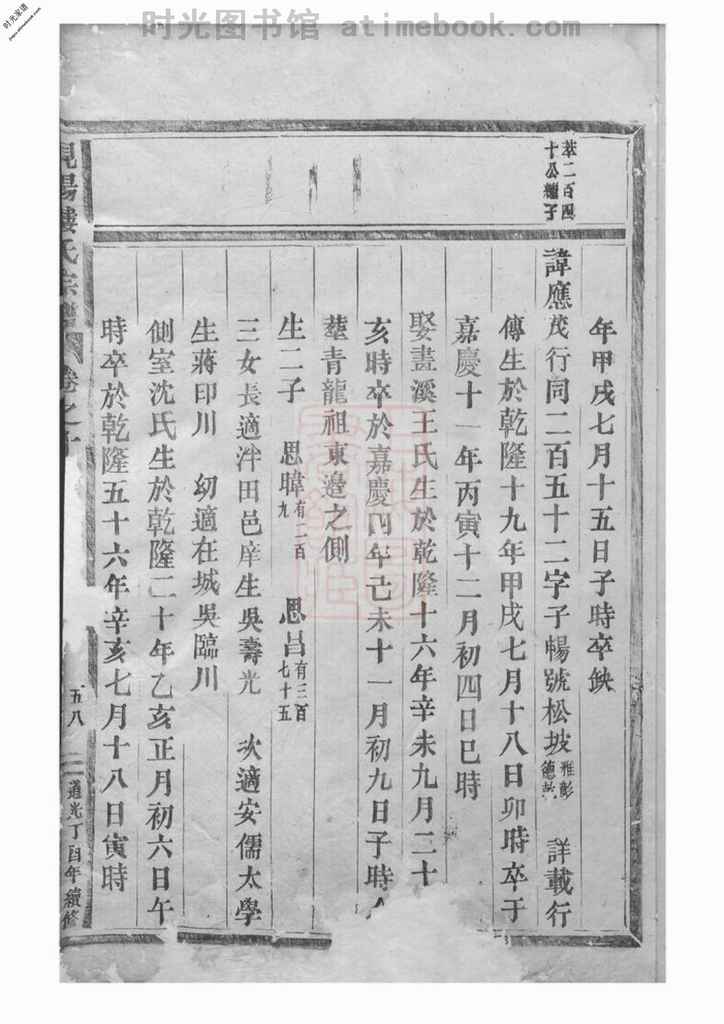 时光图书馆 atimebook.com
时光家谱
萃二百四
十公續子
年甲戌七月十五日子時卒缺
諱應茂行同二百五十二字子暢號松坡 雅彭 德 詳載行
傳生於乾隆十九年甲戌七月十八日卯時卒于
嘉慶十一年丙寅十二月初四日巳時
娶畫溪王氏生於乾隆十六年辛未九月二十
亥時卒於嘉慶四年己未十一月初九日子時
塟青龍祖東邊之側
生二子 思暐 有二百九 思昌 有三百七十五
三女長適泮田邑庠生吳壽光 次適安儒太學
生蔣印川 幼適在城吳臨川
側室沈氏生於乾隆二十年乙亥正月初六日午
時卒於乾隆五十六年辛亥七月十八日寅時
陽婁氏宗譜 卷之十 五八 道光丁酉年續修